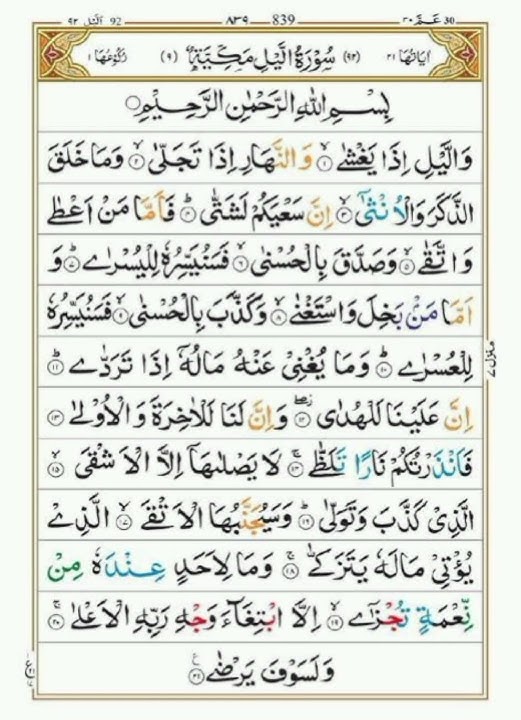 ٩٢ اَلَّيْل 92 ٨٣٩ 839 ٣٠ عَمَّ 30
اٰيَاتُهَا ٢١ (٩٢) سُوْرَةُ الَّيْلِ مَكِّيَّةٌ (٩) رُكُوْعُهَا ١
بِسْمِ اللّٰهِ الرَّحْمٰنِ الرَّحِيْمِ
وَالَّيْلِ اِذَا يَغْشٰى ۙ﴿١﴾ وَالنَّهَارِ اِذَا تَجَلّٰى ۙ﴿٢﴾ وَمَا خَلَقَ
الذَّكَرَ وَالْاُنْثٰٓى ۙ﴿٣﴾ اِنَّ سَعْيَكُمْ لَشَتّٰى ؕ﴿٤﴾ فَاَمَّا مَنْ اَعْطٰى
وَاتَّقٰى ۙ﴿٥﴾ وَصَدَّقَ بِالْحُسْنٰى ۙ﴿٦﴾ فَسَنُيَسِّرُهٗ لِلْيُسْرٰى ؕ﴿٧﴾ وَ
اَمَّا مَنْۢ بَخِلَ وَاسْتَغْنٰى ۙ﴿٨﴾ وَكَذَّبَ بِالْحُسْنٰى ۙ﴿٩﴾ فَسَنُيَسِّرُهٗ
لِلْعُسْرٰى ؕ﴿١٠﴾ وَمَا يُغْنِيْ عَنْهُ مَالُهٗٓ اِذَا تَرَدّٰى ؕ﴿١١﴾
اِنَّ عَلَيْنَا لَلْهُدٰى ۖ﴿١٢﴾ وَاِنَّ لَنَا لَلْاٰخِرَةَ وَالْاُوْلٰى ﴿١٣﴾
فَاَنْذَرْتُكُمْ نَارًا تَلَظّٰى ۚ﴿١٤﴾ لَا يَصْلٰىهَآ اِلَّا الْاَشْقَى ۙ﴿١٥﴾
الَّذِيْ كَذَّبَ وَتَوَلّٰى ؕ﴿١٦﴾ وَسَيُجَنَّبُهَا الْاَتْقَى ۙ﴿١٧﴾ الَّذِيْ
يُؤْتِيْ مَالَهٗ يَتَزَكّٰى ۚ﴿١٨﴾ وَمَا لِاَحَدٍ عِنْدَهٗ مِنْ
نِّعْمَةٍ تُجْزٰٓى ۙ﴿١٩﴾ اِلَّا ابْتِغَآءَ وَجْهِ رَبِّهِ الْاَعْلٰى ۚ﴿٢٠﴾
وَلَسَوْفَ يَرْضٰى ﴿٢١﴾
منزل ٧